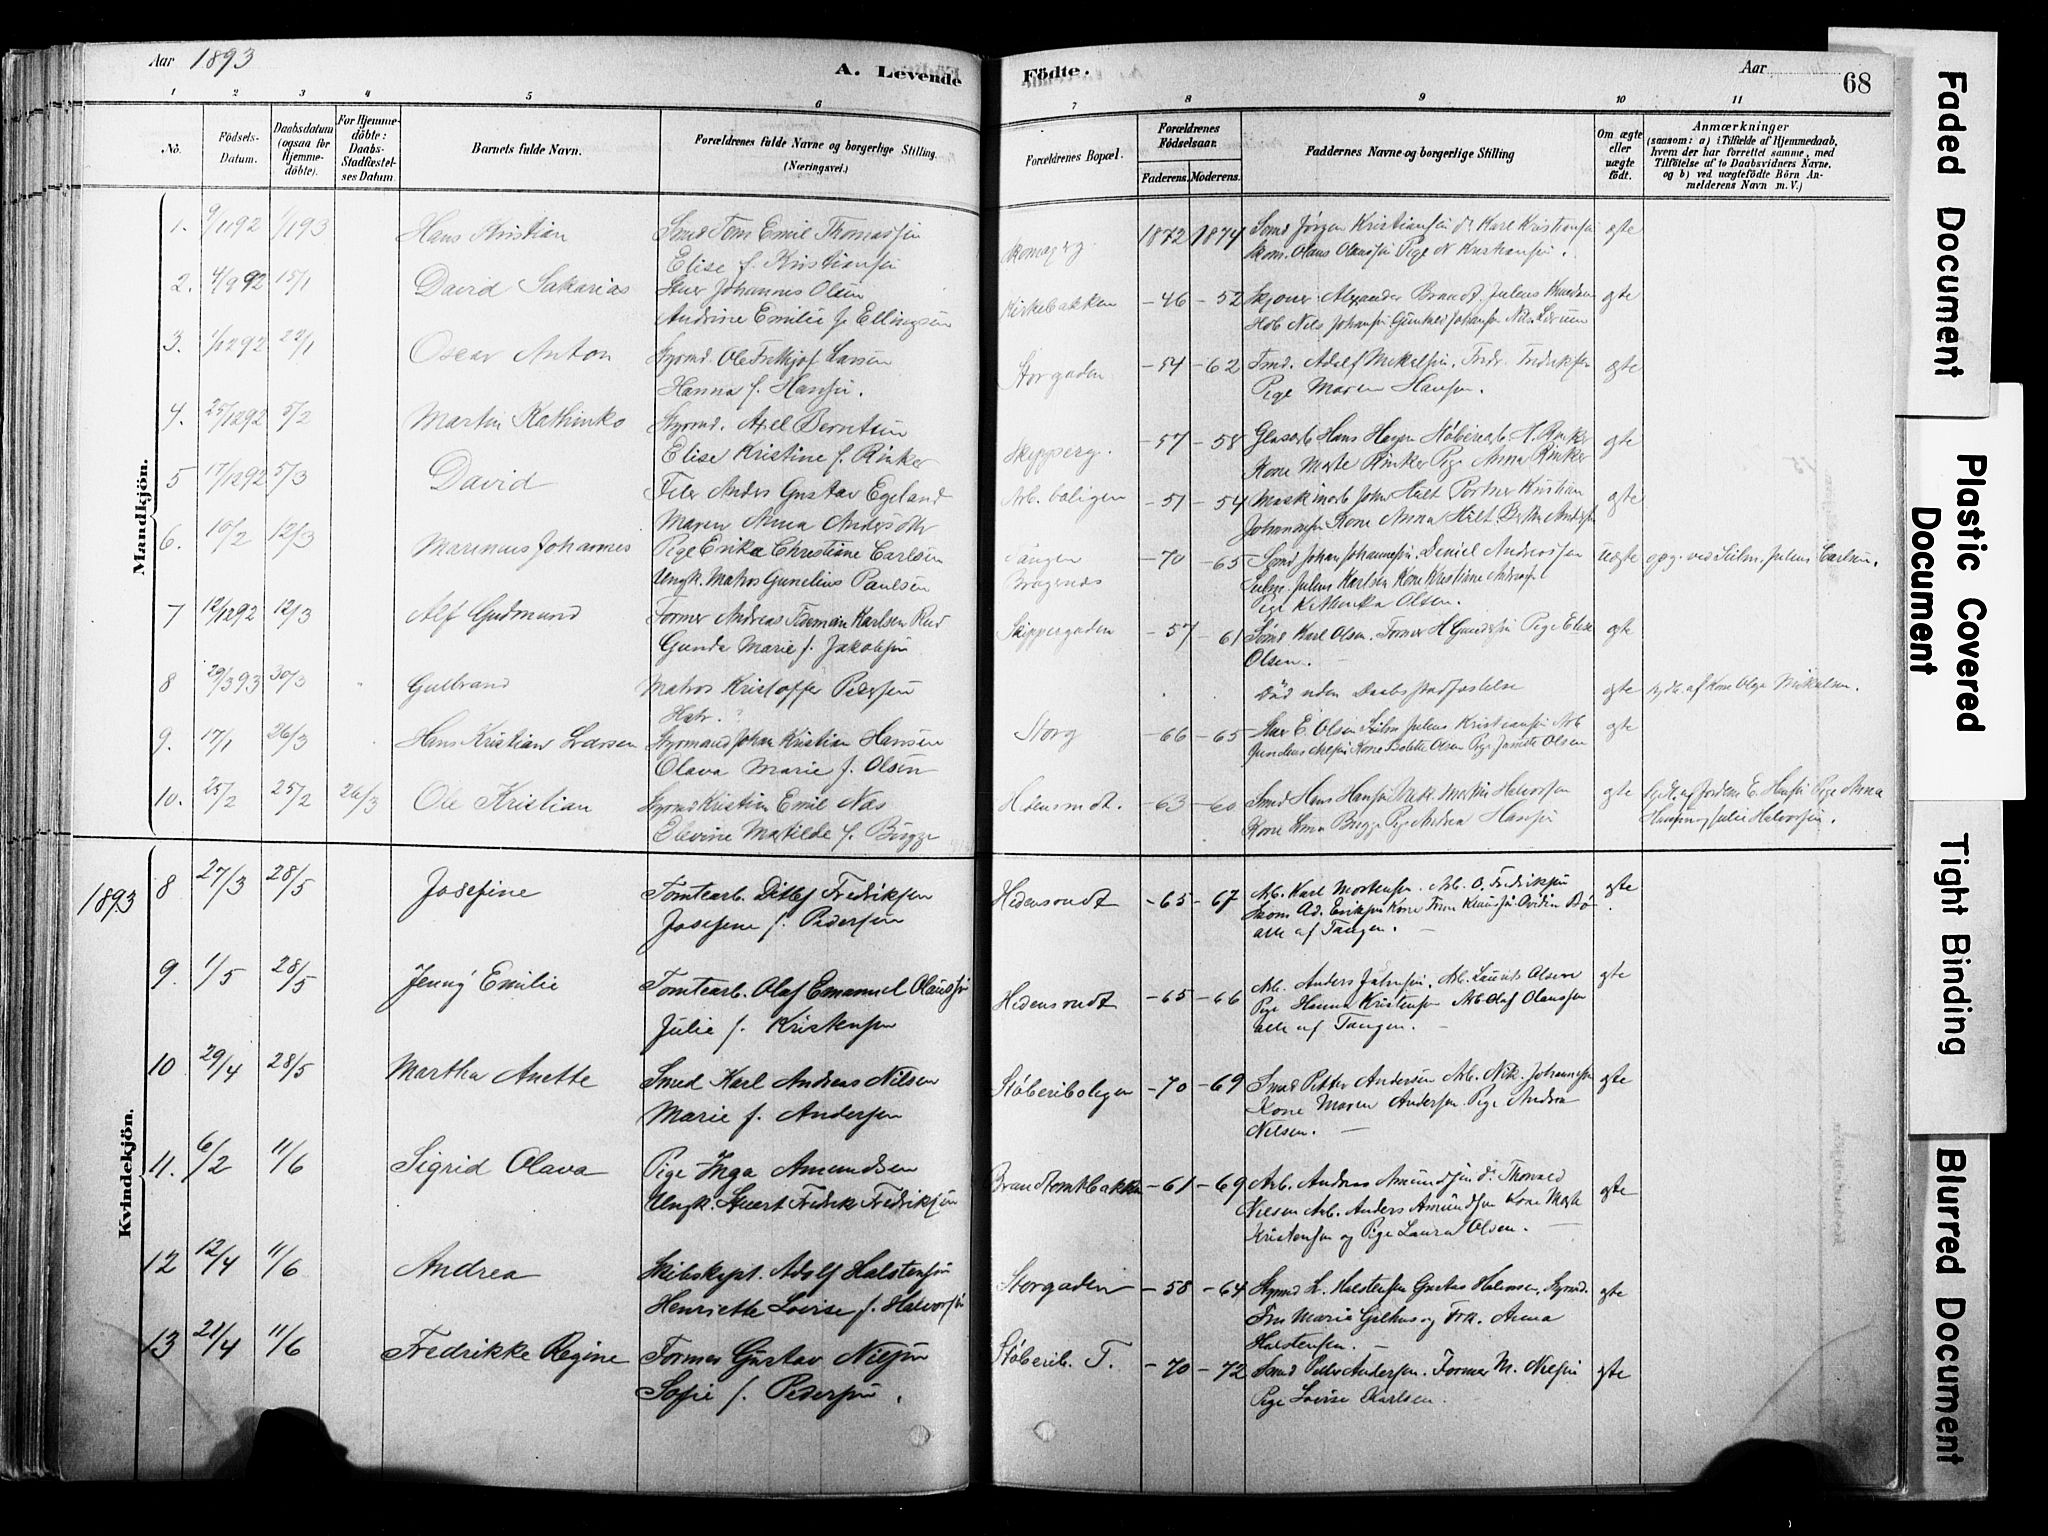 Aar 1893
A. Levende
Födte.
Aar
68
1 2 3 4 5 6 7 8 9 10 11
No.
Födsels-
Datum.
Daabsdatum
(ogsaa for
Hjemme-
döbte).
For Hjemme-
döbte:
Daabs-
Stadfæstel-
ses Datum.
Barnets fulde Navn.
Forældrenes fulde Navne og borgerlige Stilling
(Næringsvei.)
Forældrenes Bopæl.
Forældrenes
Födselsaar.
Faderens. Moderens.
Faddernes Navne og borgerlige Stilling
Om ægte
eller
uægte
födt.
Anmærkninger
(saasom: a) i Tilfælde af Hjemmedaab,
hvem der har forrettet samme, med
Tilföielse af to Daabsvidners Navne,
og b) ved uægtefödte Börn An-
melderens Navn m. V.)
Mandkjön.
1. 9/11 92 1/1 93 Hans Kristian Smed Tom Emil Thomassen 1872 1874 Smd Jørgen Kristiansen Karl Kristiansen ægte
Elise f. Kristiansen Skom. Olaus Olaussen Pige N Kristiansen.
2. 4/9 92 15/1 David Sakarias Stuer Johannes Olsen Kirkebakken -46 -52 Alexander Brandt Julius Knudsen ægte
Andrine Emilie f. Ellingsen Nils Johansen Gunhild Johansen
3. 1/12 92 22/1 Oscar Anton Styrmd. Ole Frithjof Larsen Storgaden -54 -62 Tmd. Adolf Mikkelsen. Fredriksen ægte
Hanna f. Hansen. Pige Maren Hansen.
4. 25/12 92 5/2 Martin Kathinko Styrmd. Axel Berntsen Skipperg. -57 -58 Hans Hagen Støberiarb. ægte
Elise Kristine f. Rinker Kone Marte Rinker Pige Anna Rinker
5 17/12 92 5/3 David Filer Anders Gustav Egeland Arb. boligen -51 -54 Maskinarb John Hilt Portner Kristian ægte
Maren Anna Andersdtr Johannesen Kone Anna Hilt Berthe
6. 10/2 12/3 Marinius Johannes Pige Erika Christine Carlsen Tangen -70 -65 Smd Johan Johannesen. Daniel Andersen uægte opg. ved Seilm. Julius Carlsen.
Ungk. Matros Gunelius Paulsen Bragenæs Seilm. Julius Karlsen Kone Kristine
Pige Kathinka Olsen.
7 12/12 92 12/3 Alf Gudmund Former Andreas Tideman Karlsen Rud Skippergaden -57 -61 Karl Olsen. Former H Gundersen Pige Elise ægte
Gunda Marie f. Jakobsen Olsen.
8 29/3 93 30/3 Gulbrand Matros Kristoffer Pedersen Död uden Daabsstadfæstelse ægte Hjdb. af Kone Olga Mikkelsen.
9. 17/1 26/3 Hans Kristian Larsen Styrmand Johan Kristian Hansen Storg -66 -65 Stuer E. Olsen Julius Kristiansen ægte
Olava Marie f. Olsen Kone Bolette Olsen Pige Olsen
10. 25/2 25/2 26/3 Ole Kristian Styrmd Kristian Emil Næs Hedensrudt. -63 -60 Smed Hans Hansen Martin Halvorsen ægte
Elevine Matilde f. Bugge Kone Bugge Pige Andrea Hansen Hansen og Julie Halvorsen.
Kvindekjön.
1893 8 27/3 28/5 Josefine Tomtearb. Ditlef Fredriksen Hedensrudt -65 -67 Arb. Karl Mortensen. Arb. O. Fredriksen ægte
Josefine f. Pedersen Skom Ad. Eriksen Kone
alle af Tangen.
9. 1/5 28/5 Jenny Emilie Tomtearb. Olaf Emanuel Olaussen Hedensrudt -65 -66 Arb. Anders Arb. Laurits Olsen ægte
Julie f. Kristensen Pige Hanna Kristensen Arb Olaf Olaussen
alle af Tangen.
10 29/4 28/5 Martha Anette Smed Karl Andreas Nilsen Støberibolegen -70 -69 Smed Petter Andersen Arb. Nik. Johannesen ægte
Marie f. Andersen Kone Maren Andersen. Pige Andrea
Nilsen.
11. 6/2 11/6 Sigrid Olava Pige Inga Amundsen Brandtomtbakken -61 -69 Arb. Andreas Amundsen Thorvald ægte
Ungk. Stuert Fredrik Fredriksen Nilsen Arb. Anders Amundsen Kone Marte
Kristensen og Pige Laura Olsen.
12 12/4 11/6 Andrea Skibskapt. Adolf Halstensen Storgaden -58 -64 Styrmd L. Halstensen Gustav Halvorsen, Styrmd. ægte
Henriette Lovise f. Halvorsen Fru Marie Gulhus og Frk. Anna
Halstensen.
13 21/4 11/6 Fredrikke Regine Former Gustav Nilsen Støberib. T. -70 -72 Smed Petter Andersen. Former M. Nilsen ægte
Sofie f. Pedersen. Pige Lovise Karlsen.
Faded Document
Plastic Covered
Document
Tight Binding
Blurred Document